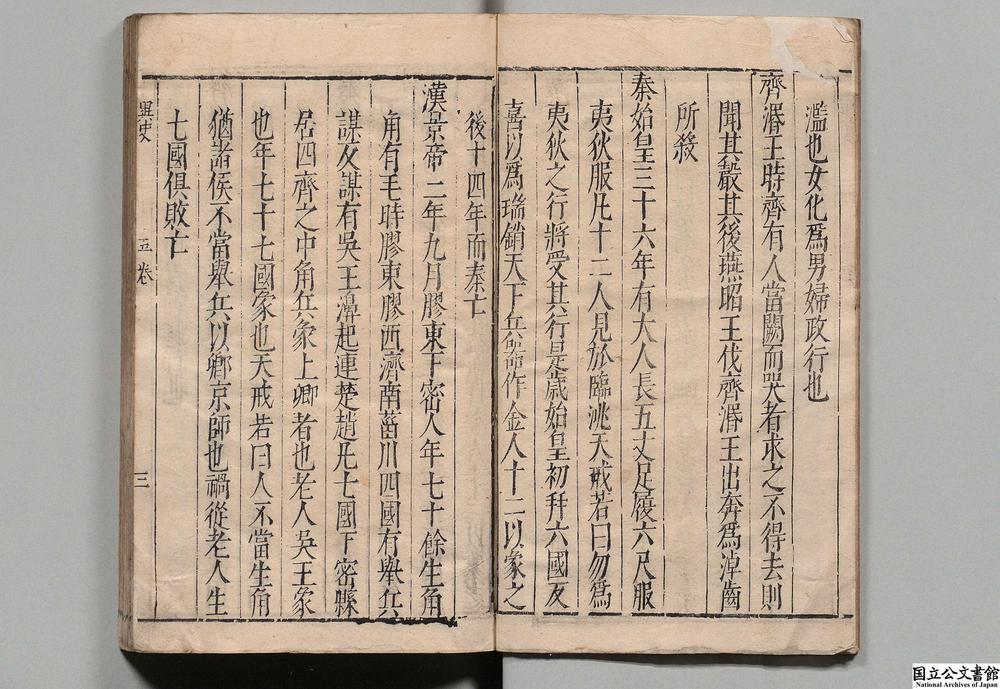 濫也女化爲男婦政行也
齊湣王時齊有人當闕而哭者求之不得去則
聞其聲其後燕昭王伐齊湣王出奔爲淖齒
所殺
秦始皇三十六年有大人長五丈足履六尺服
夷狄服凡十二人見於臨洮天戒若曰勿爲
夷狄之行將受其行是歲始皇初幷六國反
喜以爲瑞銷天下兵器作金人十二以象之
後十四年而秦亡
漢景帝二年九月膠東下密人年七十餘生角
角有毛時膠東膠西濟南菑川四國有舉兵
謀反謀有吳王濞起連楚趙凡七國下密縣
居四齊之中角兵象上卿者也老人吳王象
也年七十七國象也天戒若曰人不當生角
猶諸侯不當舉兵以鄕京師也禍從老人生
七國俱敗亡
異史
五卷
三
国立公文書館
National Archives of Japan